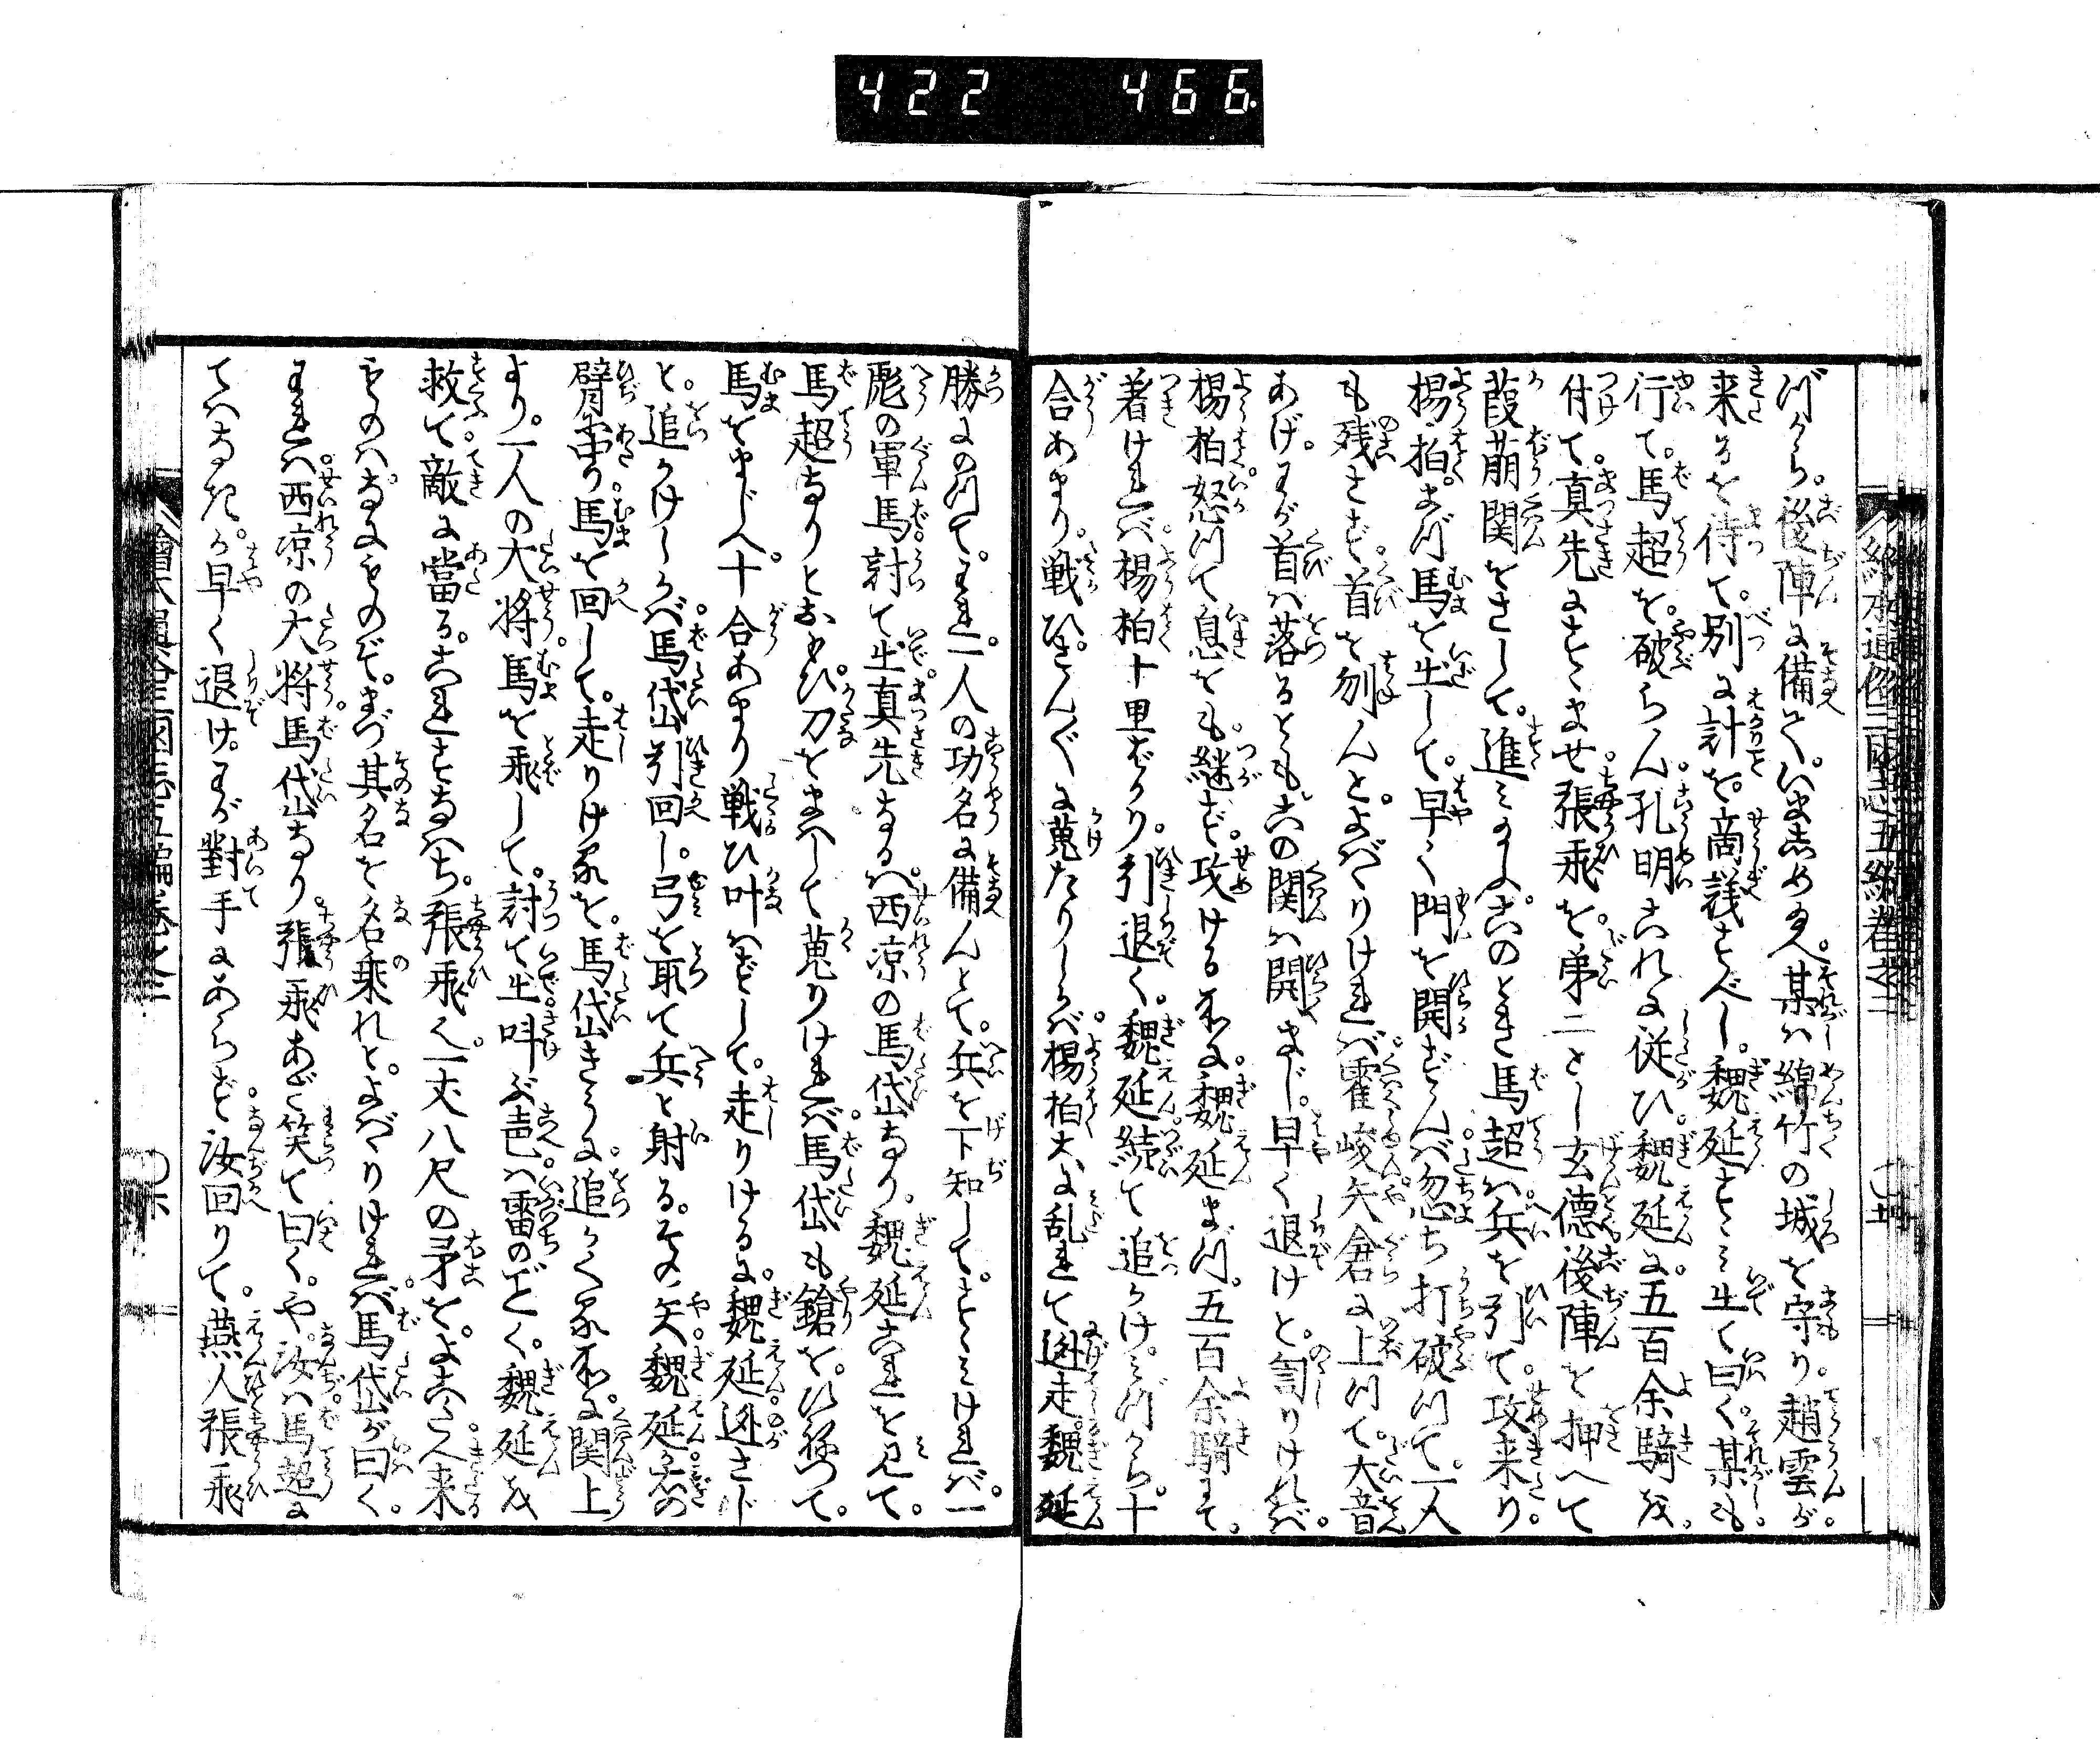 422 466
繪本通俗三國志五編卷之二
づから。後陣に備へ。いましめ玉へ。某は綿竹の城を守り。趙雲が。
来るを待て。別に計を。商議すべし。魏延すゝみ出て曰く。某も
行て。馬超を。破らん。孔明これに従ひ。魏延に。五百余騎を。
付て。真先にすゝませ。張飛を。第二とし玄徳後陣を押へて
葭萠関をさして。進みけり。このとき馬超は兵を引て。攻来り。
楊柏。まづ馬を出して。早く門を開ずんば忽ち打破つて。一人
も残さず。首を刎んと。よばゝりければ。霍峻矢倉に上つて。大音
あげ。わが首は落るとも。此の関は開まじ。早く退けと。詈りければ。
楊柏怒つて息をも。継ず。攻ける所に。魏延まづ。五百余騎にて。
着ければ。楊柏十里ばかり。引退く。魏延続て追かけ。みづから。十
合あまり。戦ひ。さんざんに蒐たりしかば。楊柏大に乱れて迯走。魏延
勝にのつて。われ。一人の功名に備んとて。兵を下知して。すゝみければ。一
彪の軍馬。討て出。真先なるは。西涼の馬岱なり。魏延これを見て。
馬超なりとおもひ。刀をまはして蒐りければ。馬岱も鎗を。ひねつて。
馬をまじへ。十合あまり戦ひ叶はずして。走りけるに。魏延。迯さじ
と。追かけしかば。馬岱引回し。弓を取て兵と射る。その矢。魏延が左の
臂に中り。馬を回して。走りける所を。馬岱きうに。追かくる所に。関上
より。一人の大将。馬を飛して。討て出。叫ぶ声は。雷のごとく。魏延を
救て。敵に當る。これすなはち。張飛也。一丈八尺の矛を。よこたへ来
ものは。なにものぞ。まづ其名を名乗れと。よばゝりければ。馬岱が曰く。
われは。西涼の大将。馬岱なり。張飛あざ笑て曰く。や。汝は馬超に
てはなきか。早く退け。わが對手にあらず。汝回りて。燕人張飛
繪本通俗三國志五編卷之二